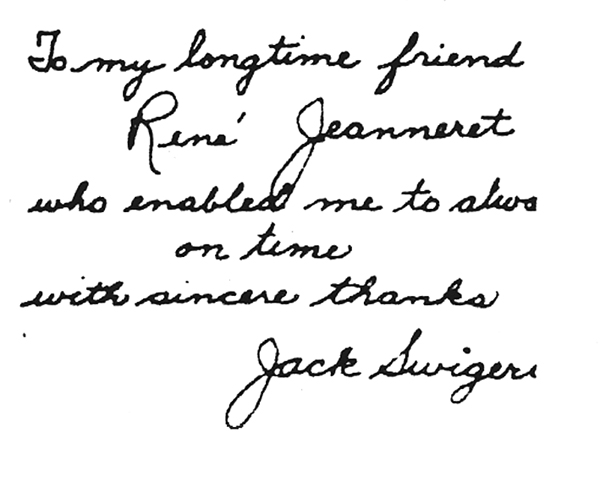 To my longtime friend
René Jeanneret
who enabled me to alwa
on time
with sincere thanks
Jack Swiger